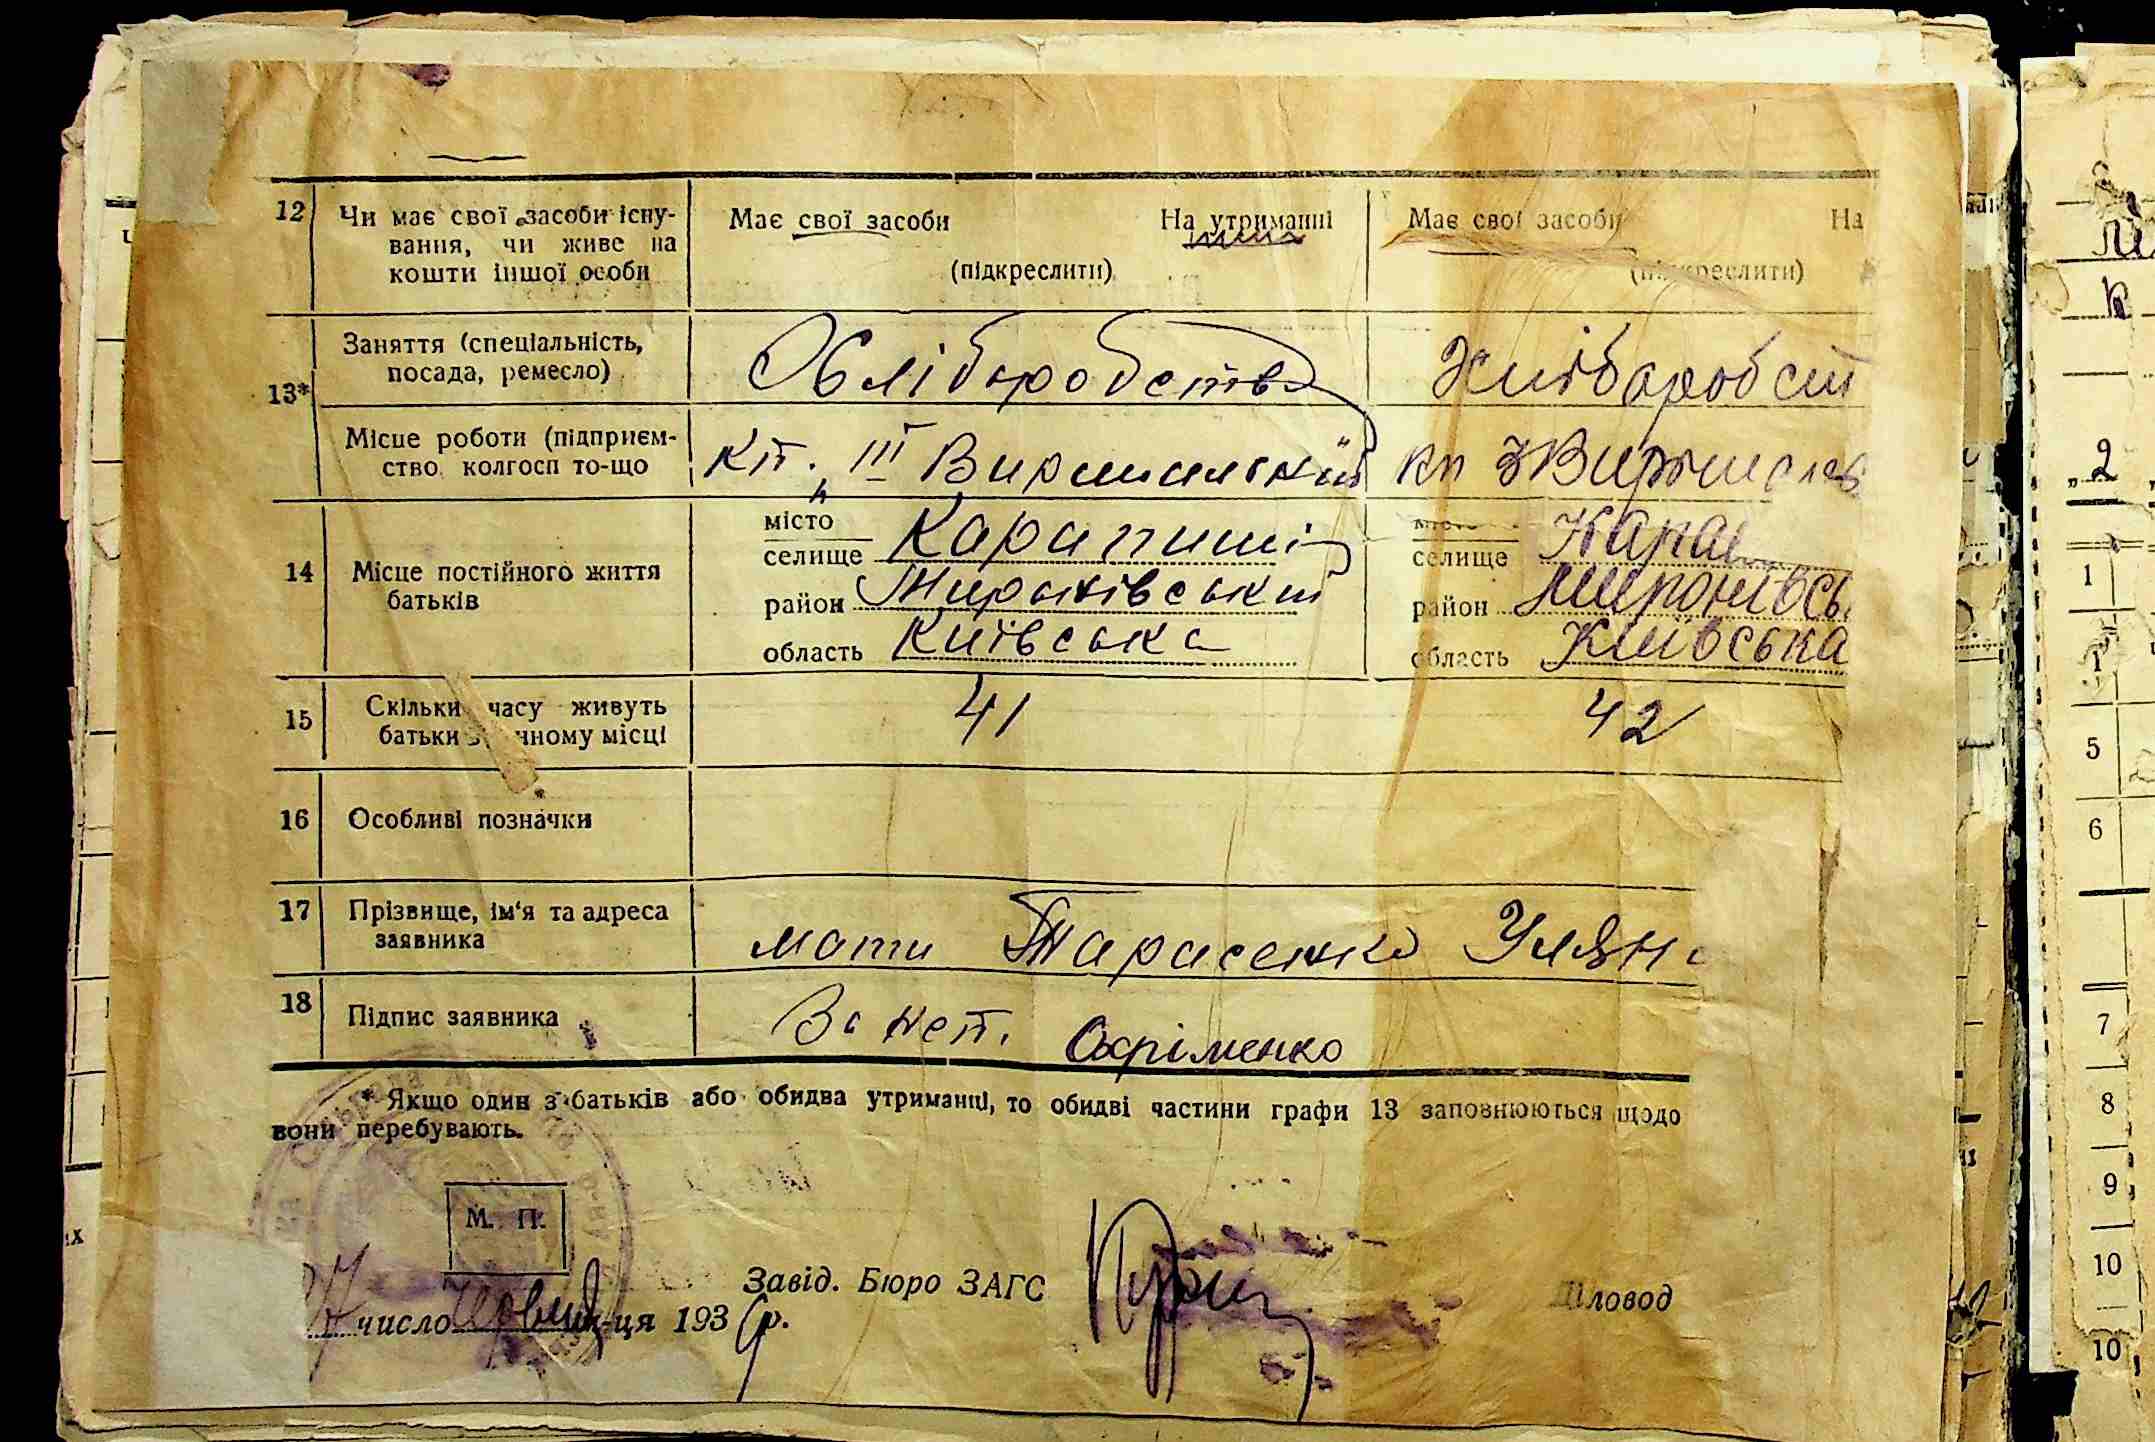 12 Чи має свої засоби існу- Має свої засоби На утриманні Має свої засоби На
вання, чи живе на
кошти іншої особи (підкреслити) (підкреслити)
13* Заняття (спеціальність, Хліборобство Хліборобст
посада, ремесло)
Місце роботи (підприєм- кп. III Вирішильний кп 3 Вирішильн
ство колгосп то-що
14 Місце постійного життя
батьків
місто
селище Карапиші
район Миронівський
область Київська
місто
селище Карап
район Миронівсь
область Київська
15 Скільки часу живуть 41 42
батьки в даному місці
16 Особливі позначки
17 Прізвище, ім'я та адреса мати Тарасенко Уляна
заявника
18 Підпис заявника За неп. Охріменко
* Якщо один з батьків або обидва утриманці, то обидві частини графи 13 заповнюються щодо
вони перебувають.
М. П.
Завід. Бюро ЗАГС Діловод
число Червня ц-ця 193 р.
2
к
1
1
5
6
7
8
9
10
10